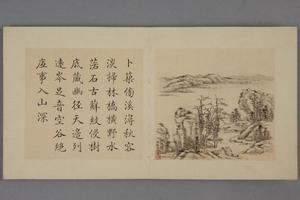 卜築傍溪潯秋容
淡掃林橋橫野水
落石古蘇紋侵樹
底藏幽徑天邊列
遠岑足音空谷絕
底事入山深